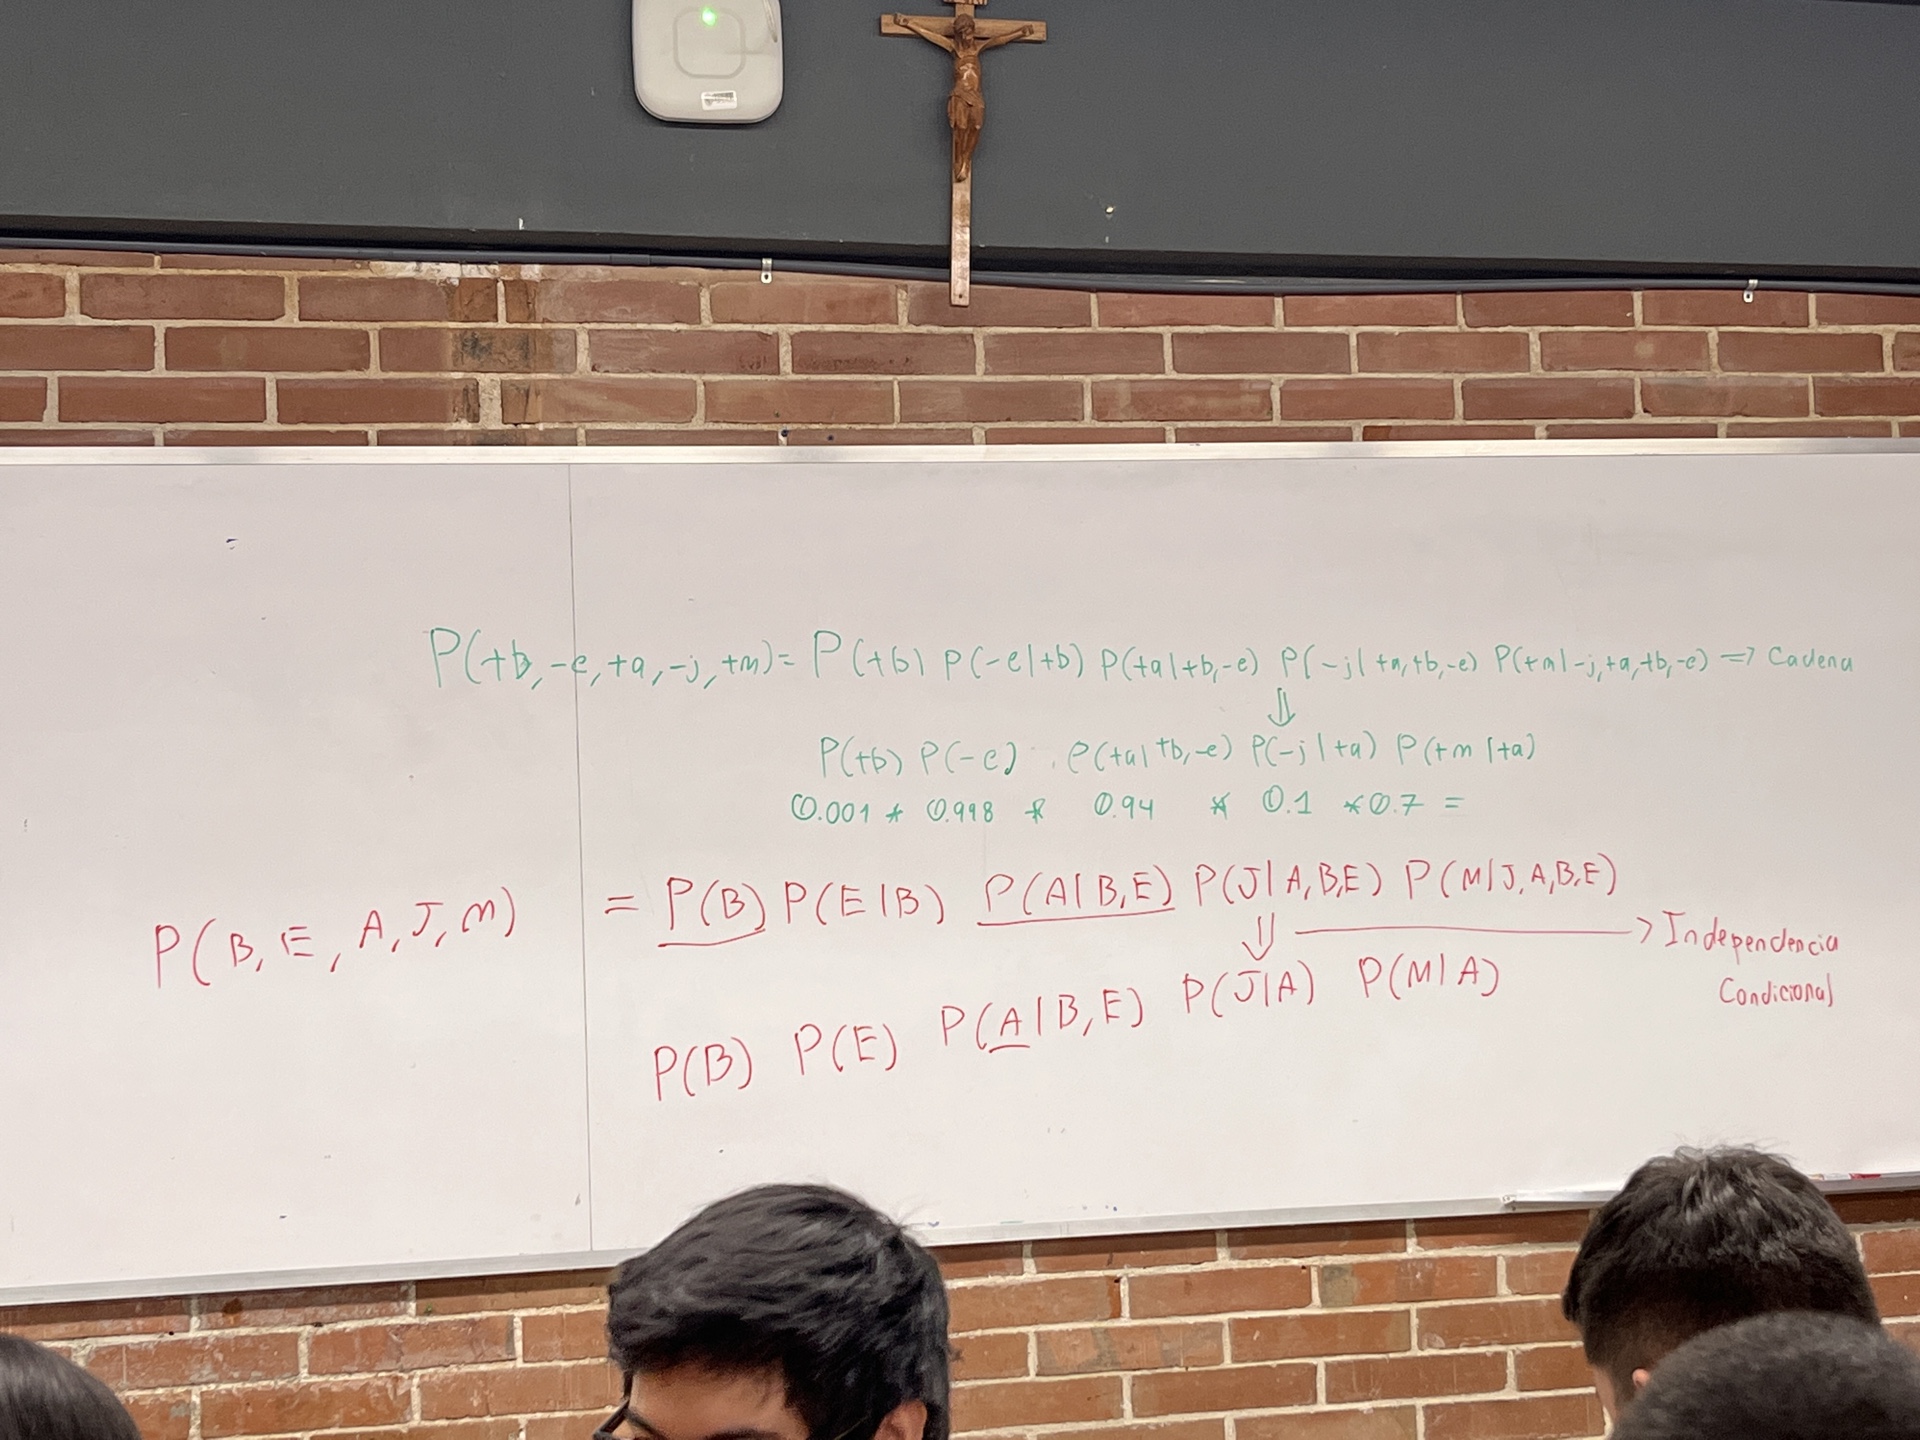 P(+b,-e,+a,-j,+m)= P(+b) P(-e|+b) P(+a|+b,-e) P(-j|+a,+b,-e) P(+m|-j,+a,+b,-e) => Cadena
⇓
P(+b) P(-e) . P(+a|+b,-e) P(-j|+a) P(+m|+a)
0.001 * 0.998 * 0.94 * 0.1 * 0.7 =
P(B,E,A,J,M) = P(B) P(E|B) P(A|B,E) P(J|A,B,E) P(M|J,A,B,E)
⇓ → Independencia
Condicional
P(B) P(E) P(A|B,E) P(J|A) P(M|A)